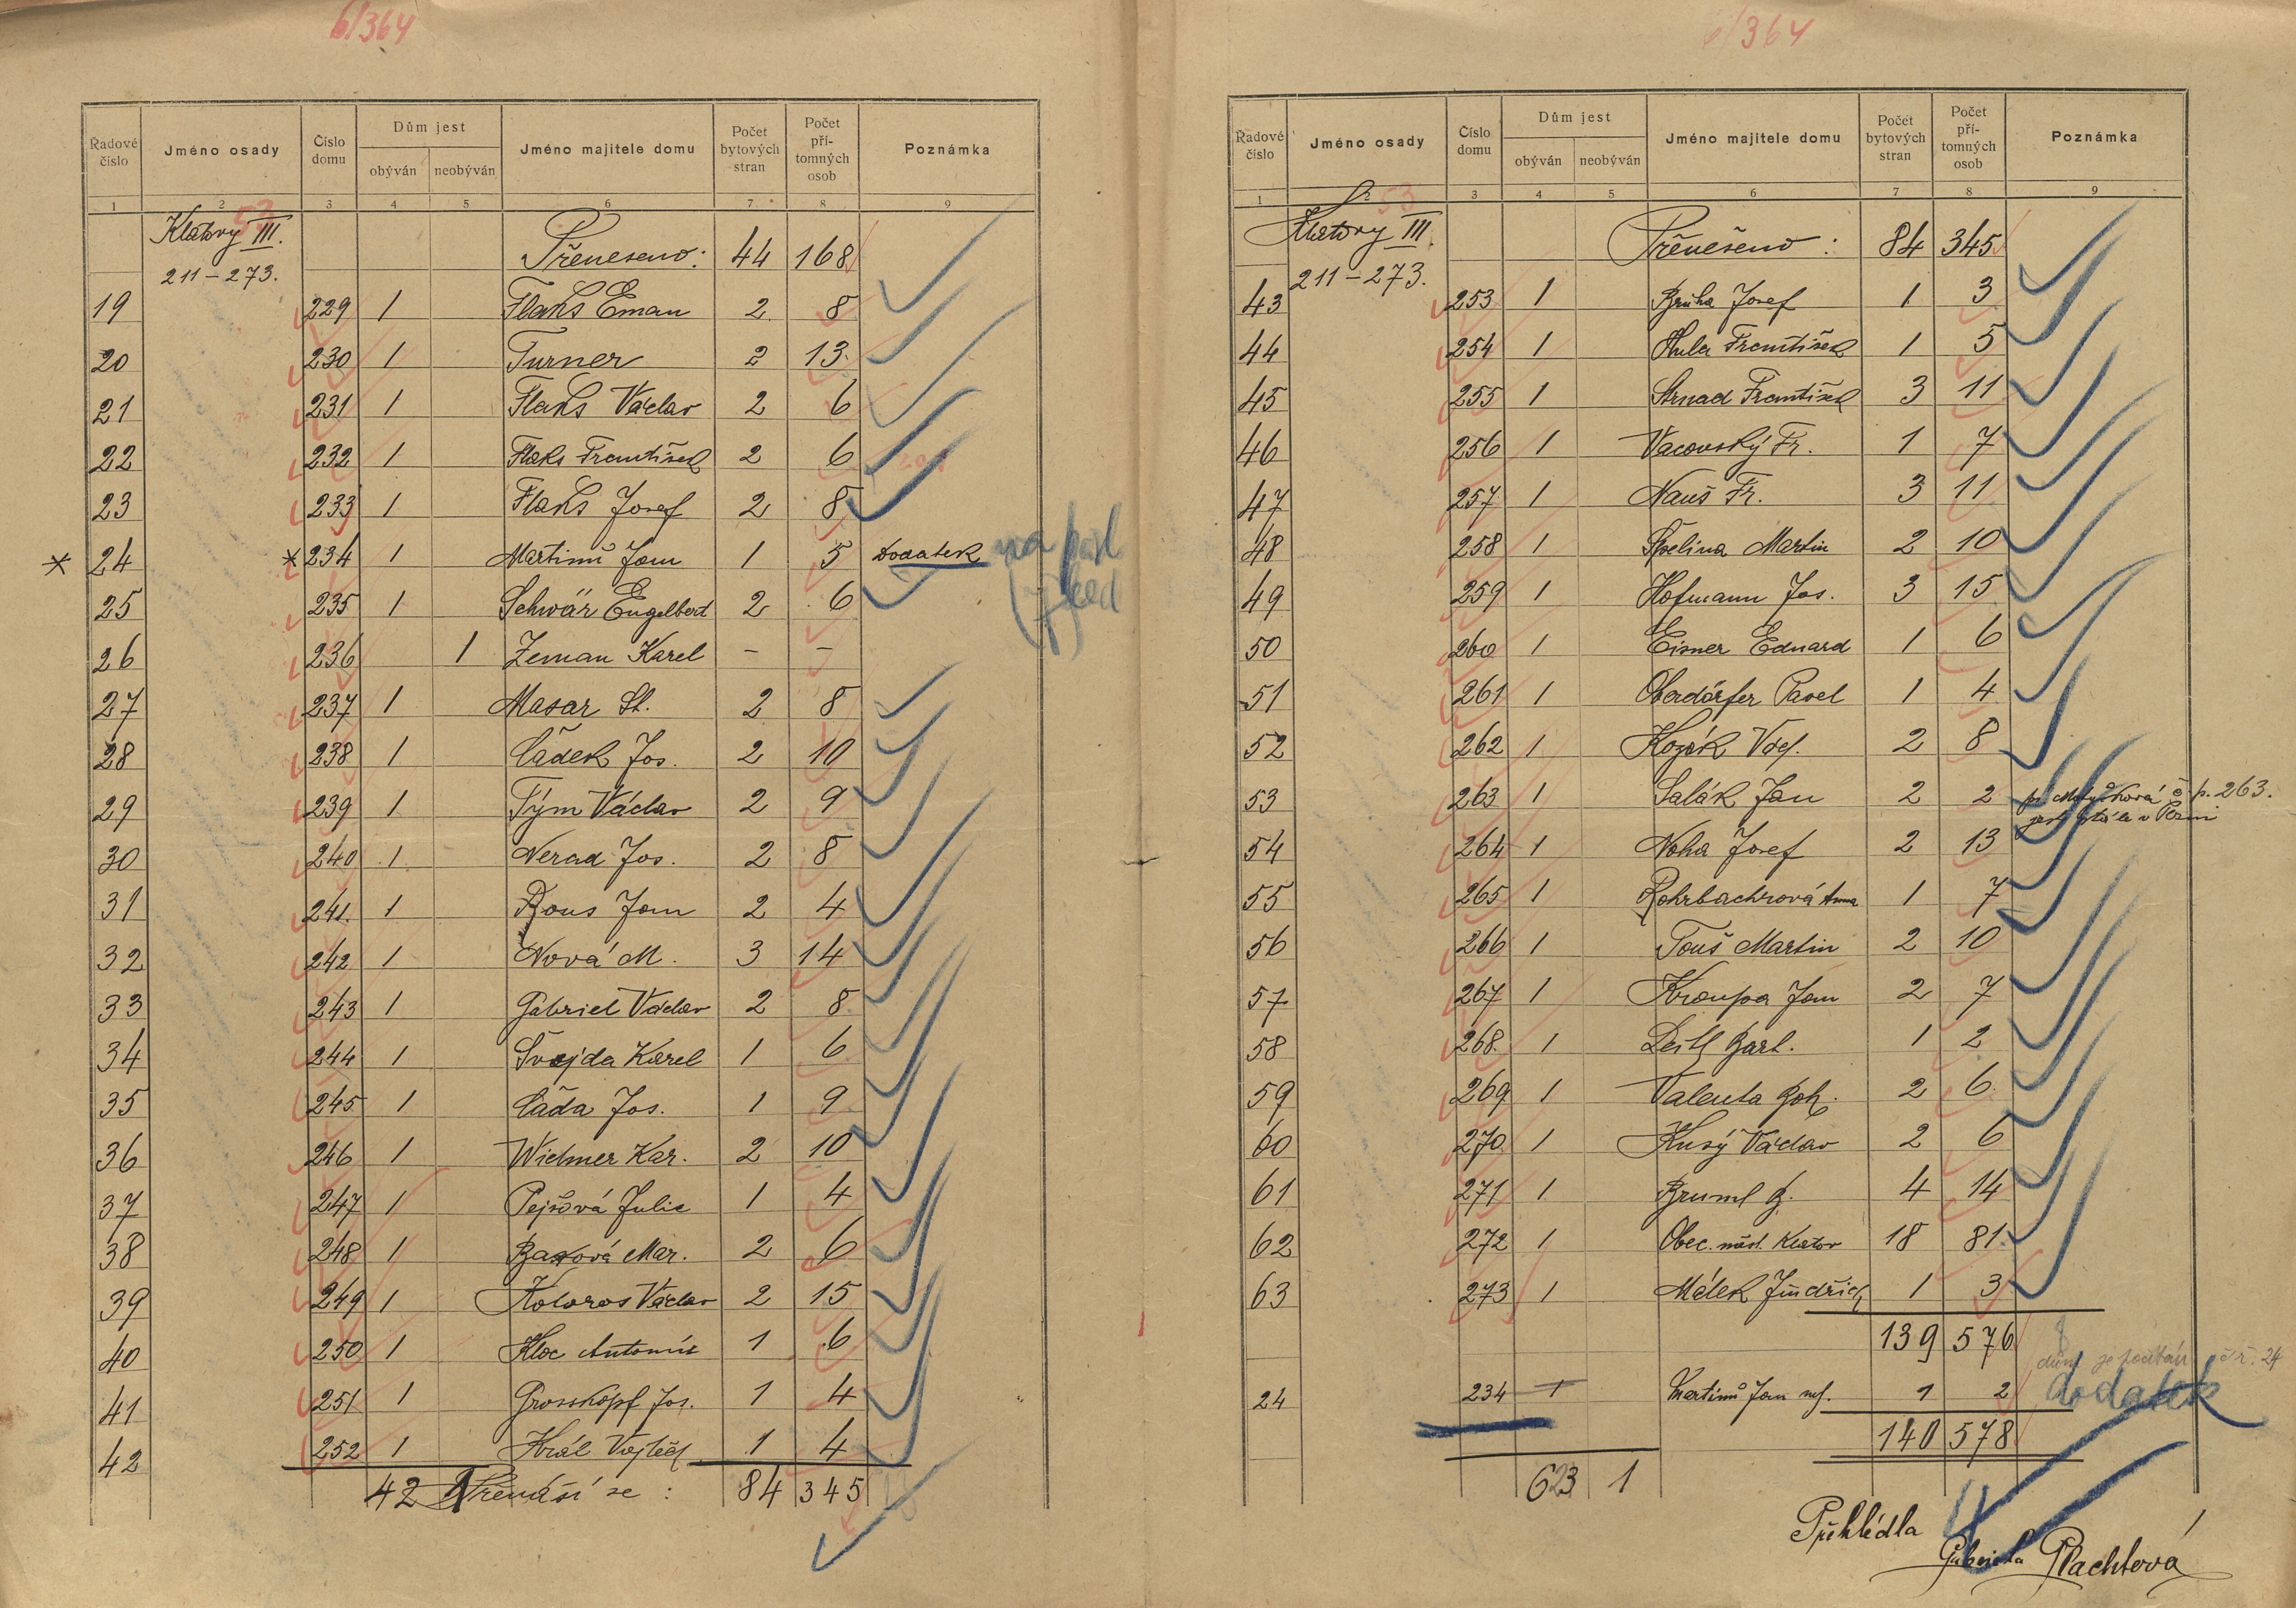 6/364
Řadové číslo Jméno osady Číslo domu Dům jest obýván neobýván Jméno majitele domu Počet bytových stran Počet pří-tomných osob Poznámka
1 2 3 4 5 6 7 8 9
53
Klatovy III. Přeneseno: 44 168
211-273.
19 229 1 Flaks Eman 2 8
20 230 1 Turner 2 13
21 231 1 Flaks Václav 2 6
22 232 1 Flaks František 2 6
23 233 1 Flaks Josef 2 8
* 24 * 234 1 Martinů Jan 1 5 Dodatek
25 235 1 Schwär Engelbert 2 6
26 236 1 Zeman Karel - -
27 237 1 Masar St. 2 8
28 238 1 Čádek Jos. 2 10
29 239 1 Tým Václav 2 9
30 240 1 Nerad Jos. 2 8
31 241. 1 Rous Jan 2 4
32 242 1 Nová M. 3 14
33 243 1 Gabriel Václav 2 8
34 244 1 Švejda Karel 1 6
35 245 1 Čáda Jos. 1 9
36 246 1 Widmer Kar. 2 10
37 247 1 Pejšová Julie 1 4
38 248 1 Baxová Mar. 2 6
39 249 1 Koloros Václav 2 15
40 250 1 Kloc Antonín 1 6
41 251 1 Grosskopf Jos. 1 4
42 252 1 Král Vojtěch 1 4
42 1 Přenáší se: 84 345
6/364
Řadové číslo Jméno osady Číslo domu Dům jest obýván neobýván Jméno majitele domu Počet bytových stran Počet pří-tomných osob Poznámka
1 2 3 4 5 6 7 8 9
53
Klatovy III. Přenešeno: 84 345
211-273.
43 253 1 Brůha Josef 1 3
44 254 1 Hula František 1 5
45 255 1 Strnad František 3 11
46 256 1 Vacovský Fr. 1 7
47 257 1 Nauš Fr. 3 11
48 258 1 Špelina Martin 2 10
49 259 1 Hofmann Jos. 3 15
50 260 1 Eisner Eduard 1 6
51 261 1 Oberdörfer Pavel 1 4
52 262 1 Kozák Václ. 2 8
53 263 1 Salák Jan 2 2 č. p. 263.
54 264 1 Noha Josef 2 13
55 265 1 Rohrbachrová Anna 1 7
56 266 1 Touš Martin 2 10
57 267 1 Kroupa Jan 2 7
58 268. 1 Deitl Bart. 1 2
59 269 1 Valenta Boh. 2 6
60 270 1 Kusý Václav 2 6
61 271 1 Bruml B. 4 14
62 272 1 Obec. měst. Klatov 18 81
63 273 1 Málek Jindřich 1 3
139 576
dům je počítán č. ř. 24
24 234 1 Martinů Jan ml. 1 2 dodatek
140 578
623 1
Přehlédla
Gabriela Plachtová